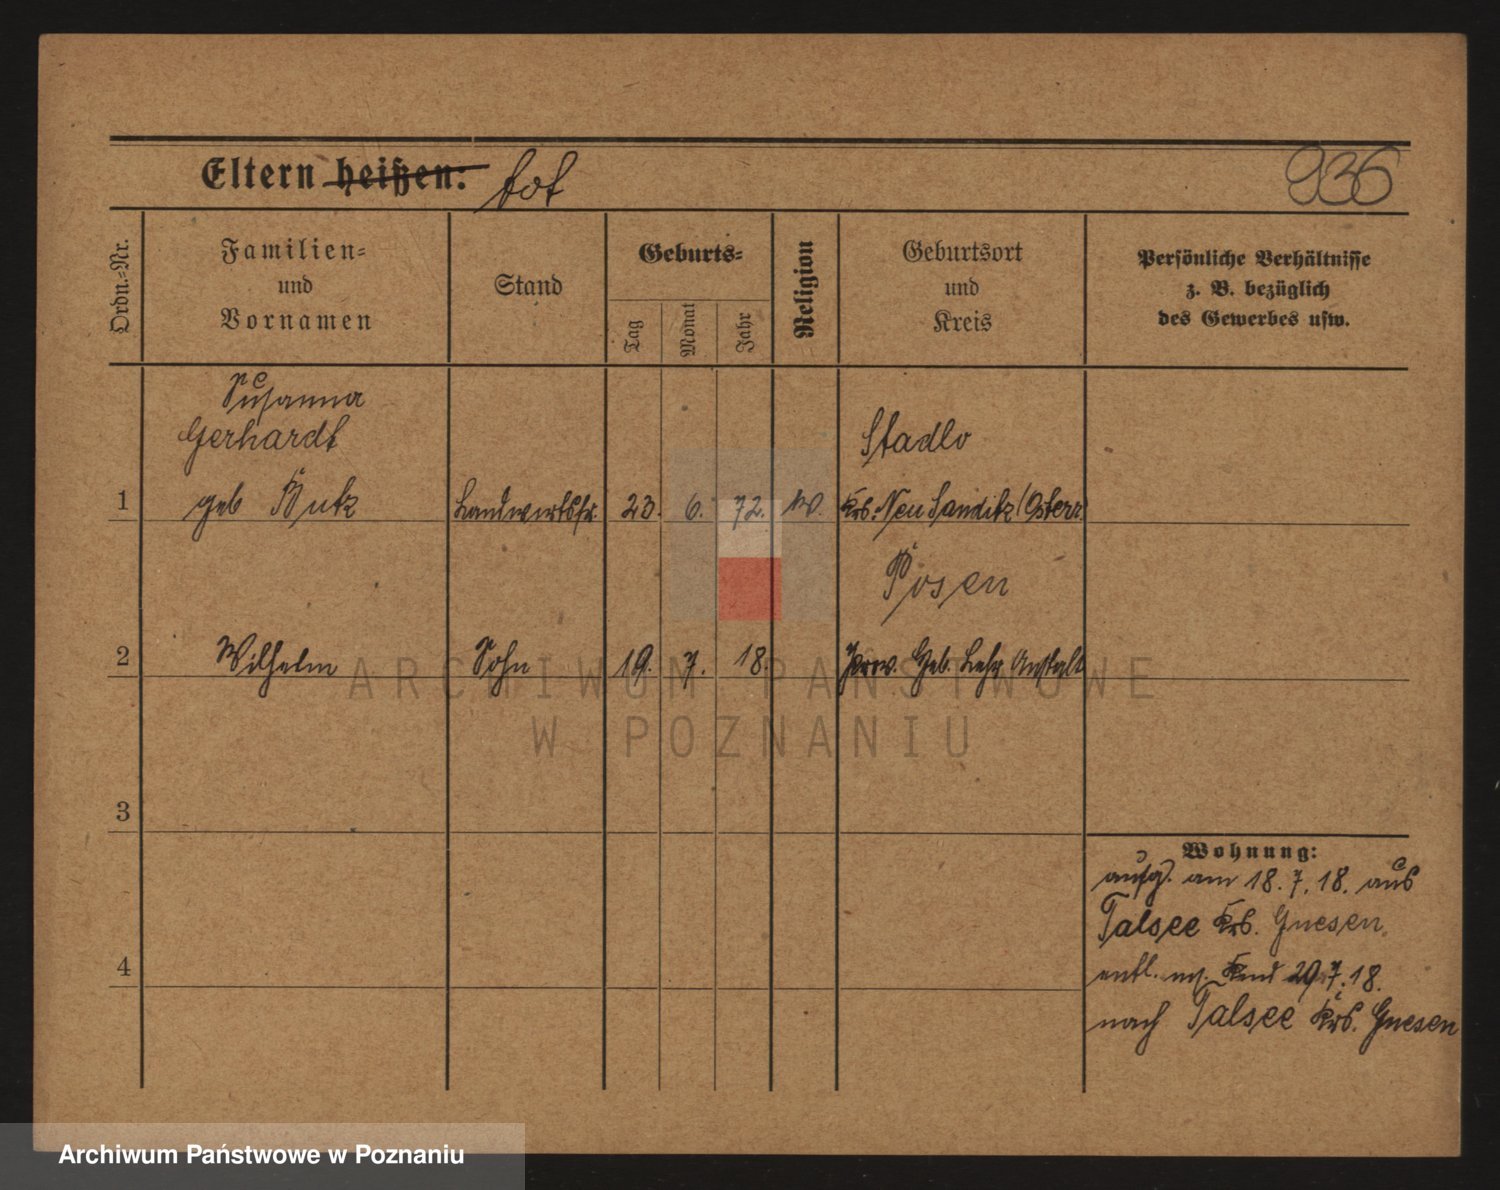 Eltern heißen: tot
936
Ordn.-Nr.
Familien-
und
Vornamen
Stand
Geburts-
Tag
Monat
Jahr
Religion
Geburtsort
und
Kreis
Persönliche Verhältnisse
z. B. bezüglich
des Gewerbes usw.
Susanna
Gerhardt
Stadlo
1 geb Butz Landwirtsfr. 23. 6. 72. Krs. Neu Sanditz (Österr.
Posen
2 Wilhelm Sohn 19. 7. 18. Prov. Heb. Lehr Anstalt
ARCHIWUM PAŃSTWOWE
W POZNANIU
3
Wohnung:
aufg. am 18. 7. 18. aus
Talsee Krs. Gnesen.
4
entl. m. Kind 29.7.18.
nach Talsee Krs. Gnesen
Archiwum Państwowe w Poznaniu